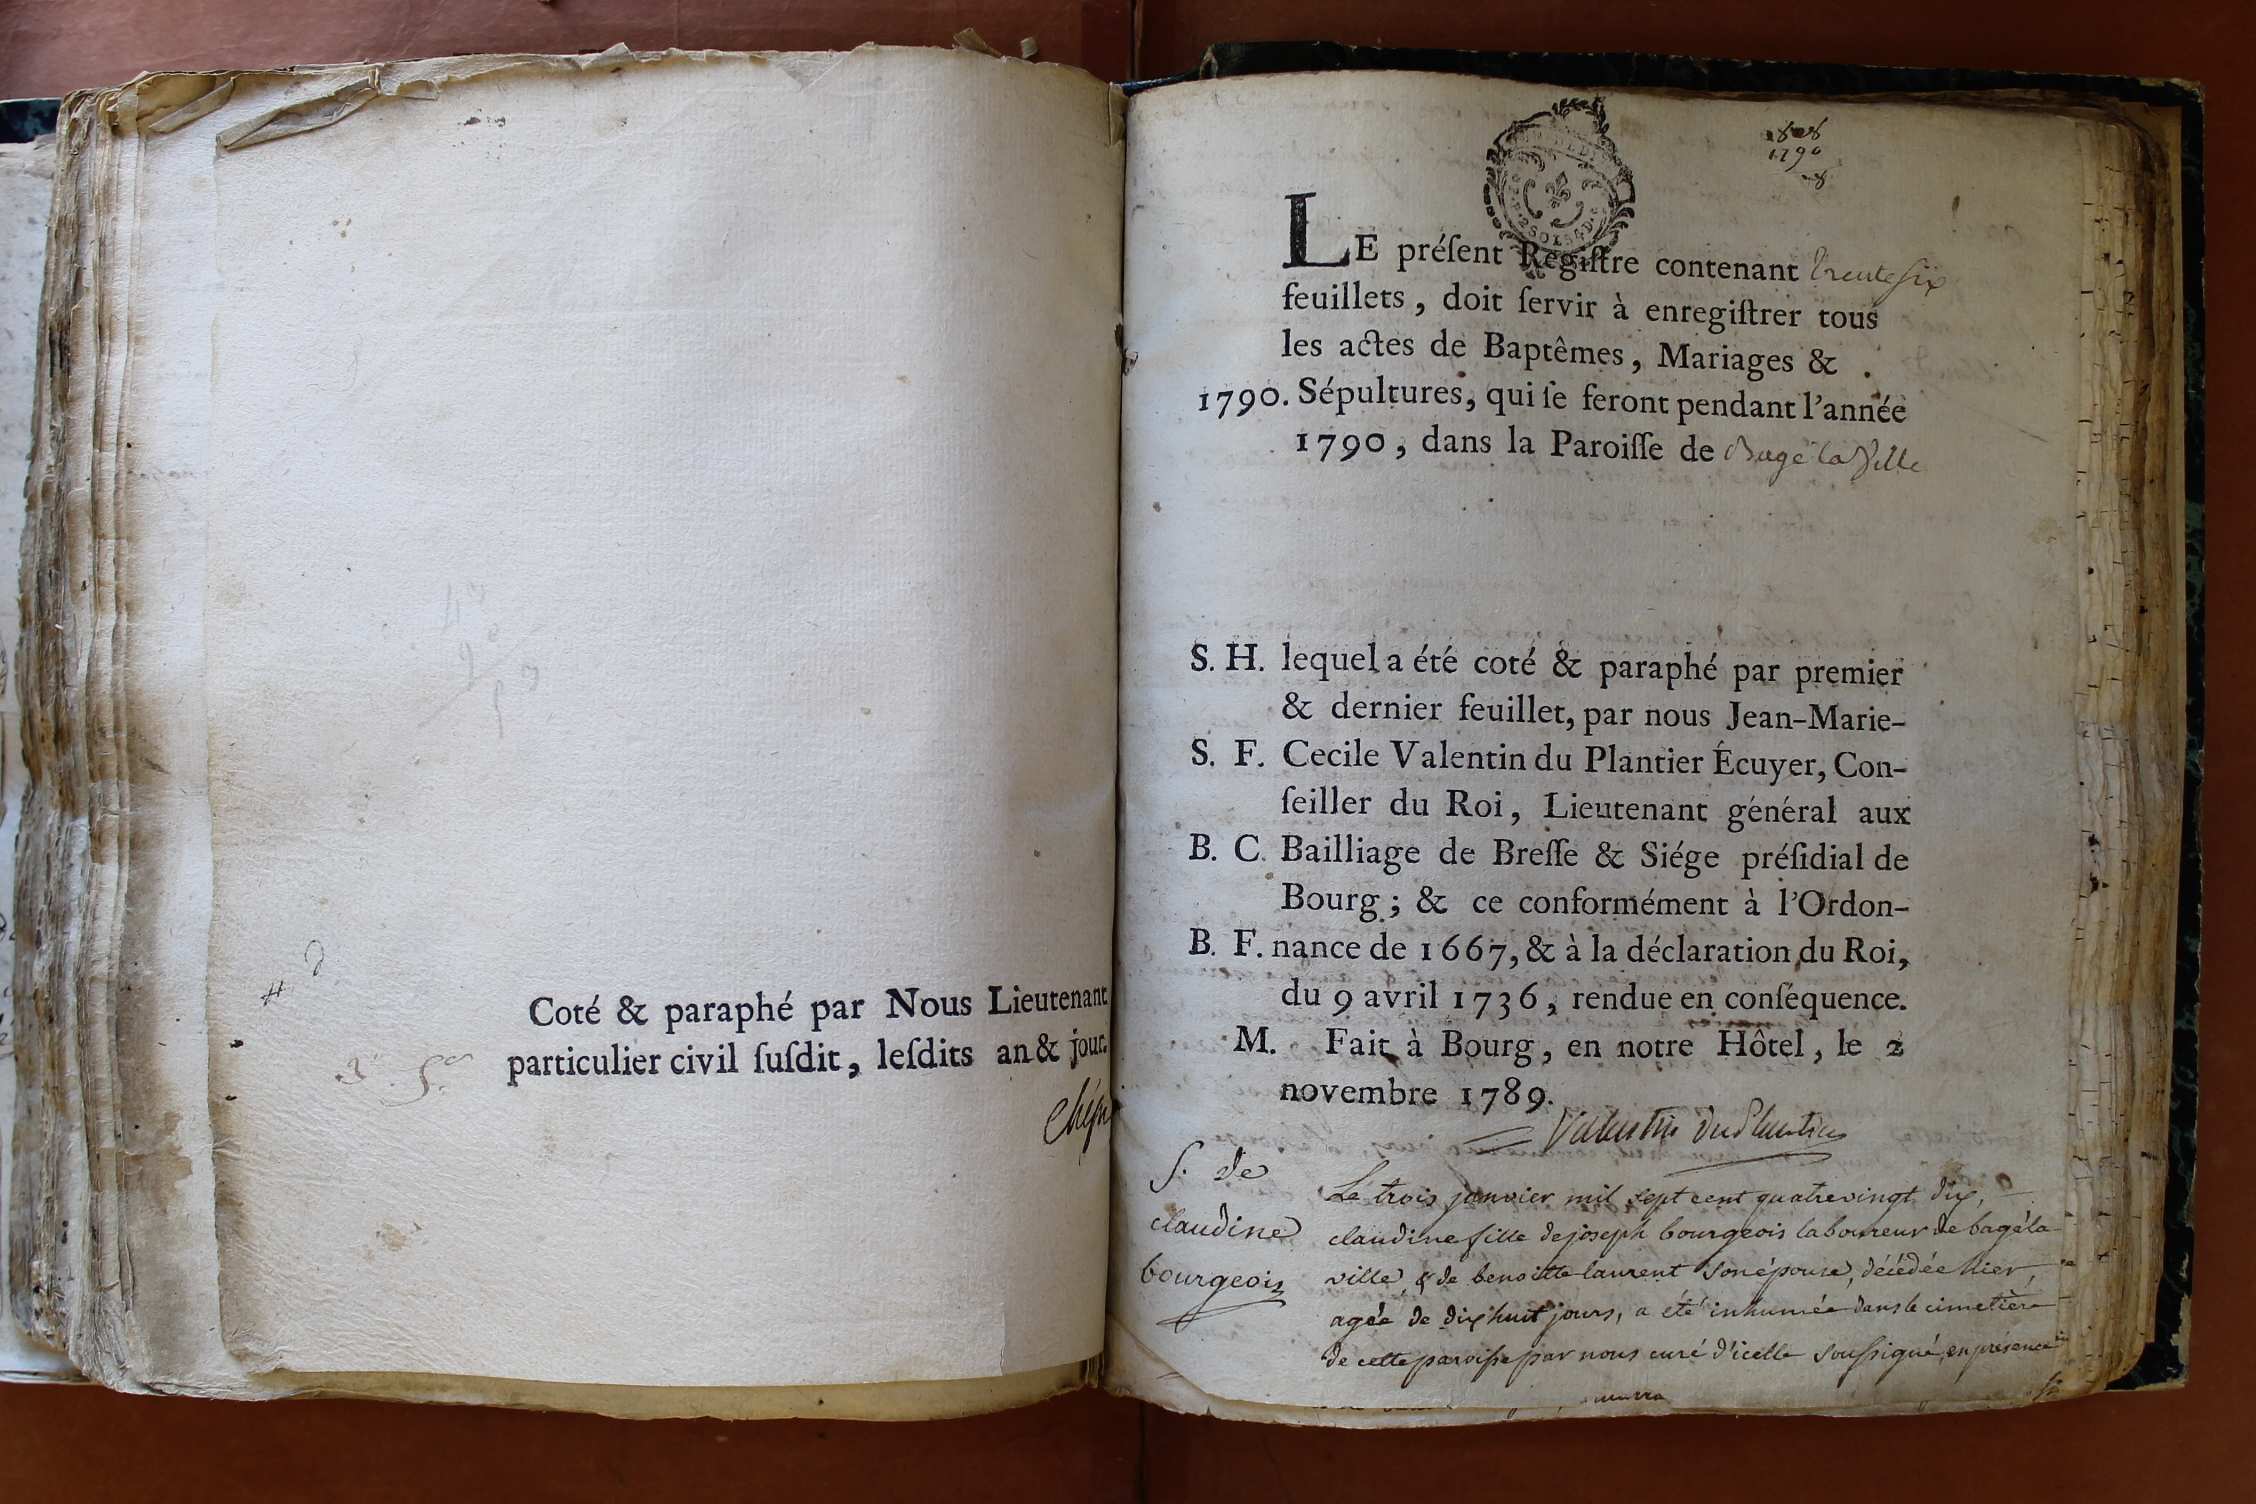 Coté & paraphé par Nous Lieutenant
particulier civil ſuſdit, leſdits an & jour.
1790
LE préſent Regiſtre contenant trente ſix
feuillets, doit ſervir à enregiſtrer tous
les actes de Baptêmes, Mariages &
1790. Sépultures, qui ſe feront pendant l'année
1790, dans la Paroiſſe de Bagé la Ville
S. H. lequel a été coté & paraphé par premier
& dernier feuillet, par nous Jean-Marie-
S. F. Cecile Valentin du Plantier Écuyer, Con-
ſeiller du Roi, Lieutenant général aux
B. C. Bailliage de Breſſe & Siége préſidial de
Bourg; & ce conformément à l'Ordon-
B. F. nance de 1667, & à la déclaration du Roi,
du 9 avril 1736, rendue en conſéquence.
M. Fait à Bourg, en notre Hôtel, le 2
novembre 1789.
Valentin DuPlantier
S. de
claudine
bourgeois
Le trois janvier mil sept cent quatrevingt dix,
claudine fille de joseph bourgeois laboureur de bagé la
ville, & de benoitte laurent son épouse, décédée hier,
agée de dix huit jours, a été inhumée dans le cimetière
de cette paroiſse par nous curé d'icelle souſsigné, en présence